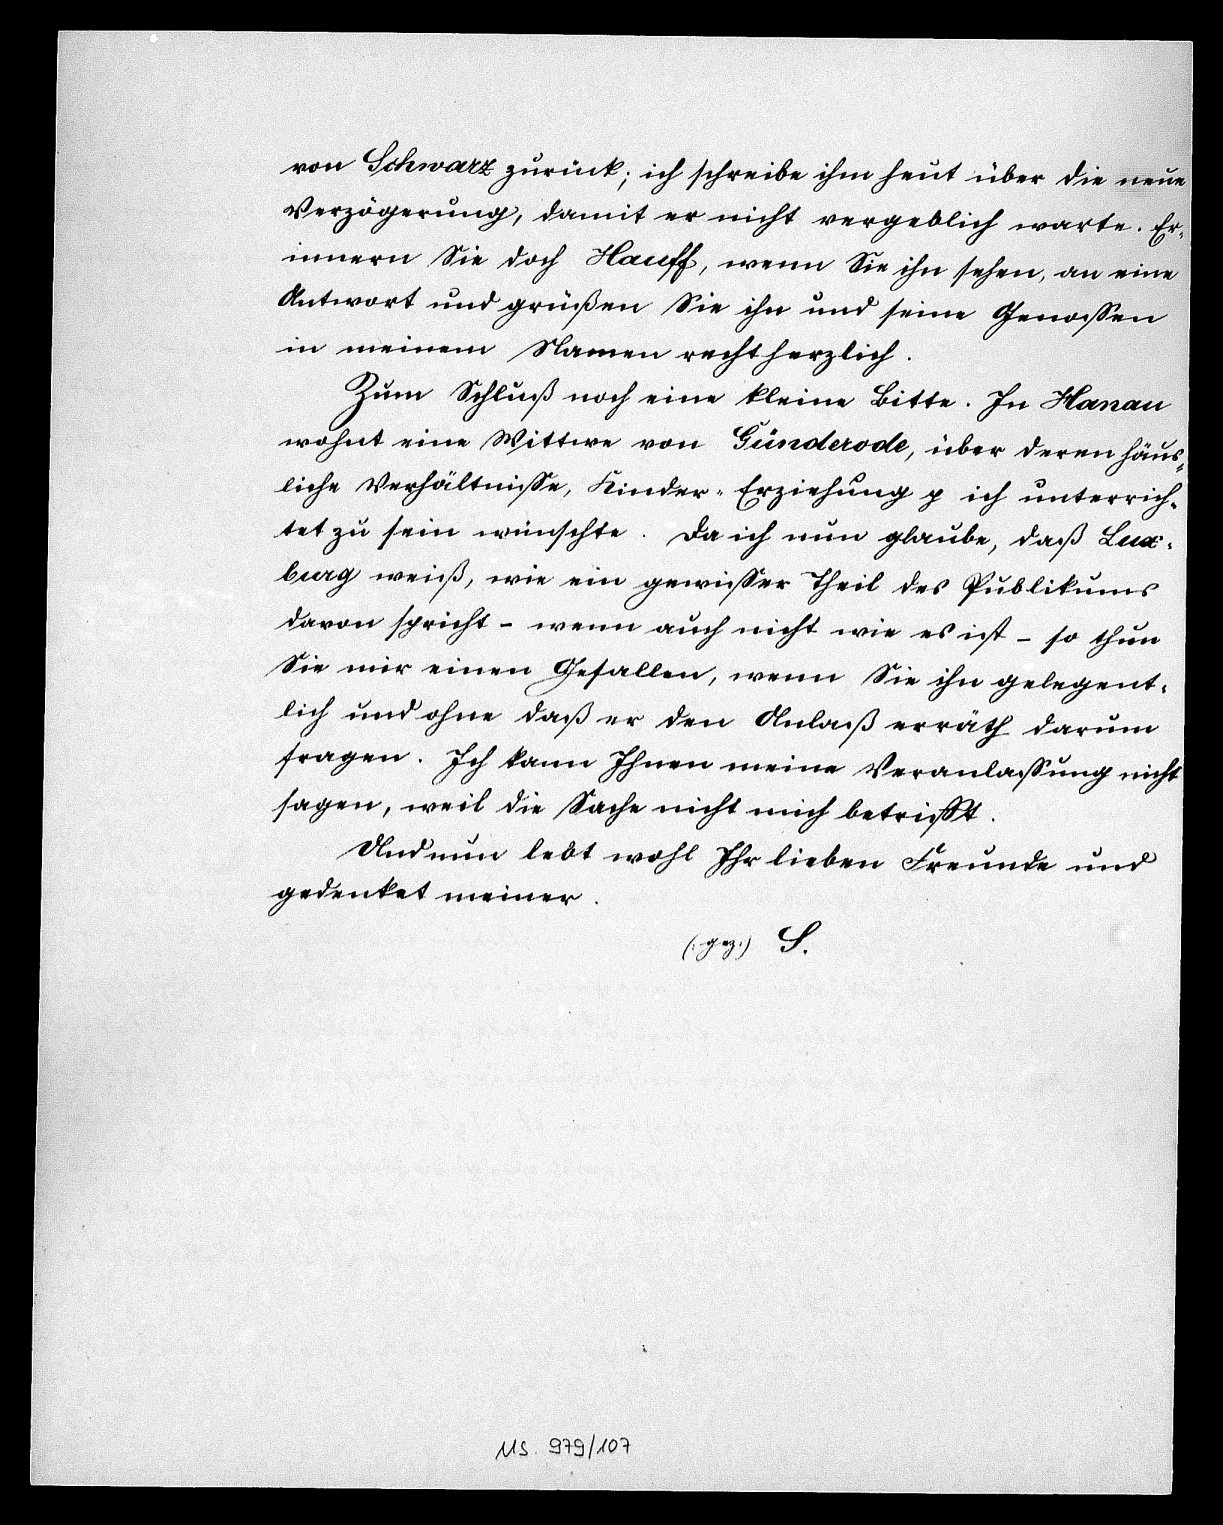 von Schwarz zurück; ich schreibe ihm heut über die neue
Verzögerung, damit er nicht vergeblich warte. Er-
innern Sie doch Hauff, wenn Sie ihn sehen, an eine
Antwort und grüßen Sie ihn und seine Genossen
in meinem Namen recht herzlich.
Zum Schluß noch eine kleine Bitte. In Hanau
wohnt eine Wittwe von Günderode, über deren häus-
liche Verhältnisse, Kinder-Erziehung p ich unterrich-
tet zu sein wünschte. Da ich nun glaube, daß Lux-
burg weiß, wie ein gewisser Theil des Publikums
davon spricht - wenn auch nicht wie es ist - so thun
Sie mir einen Gefallen, wenn Sie ihn gelegent-
lich und ohne daß er den Anlaß erräth darum
fragen. Ich kann Ihnen meine Veranlassung nicht
sagen, weil die Sache nicht mich betrifft.
Und nun lebt wohl Ihr lieben Freunde und
gedenket meiner.
(: gez :) S.
MS. 979/107